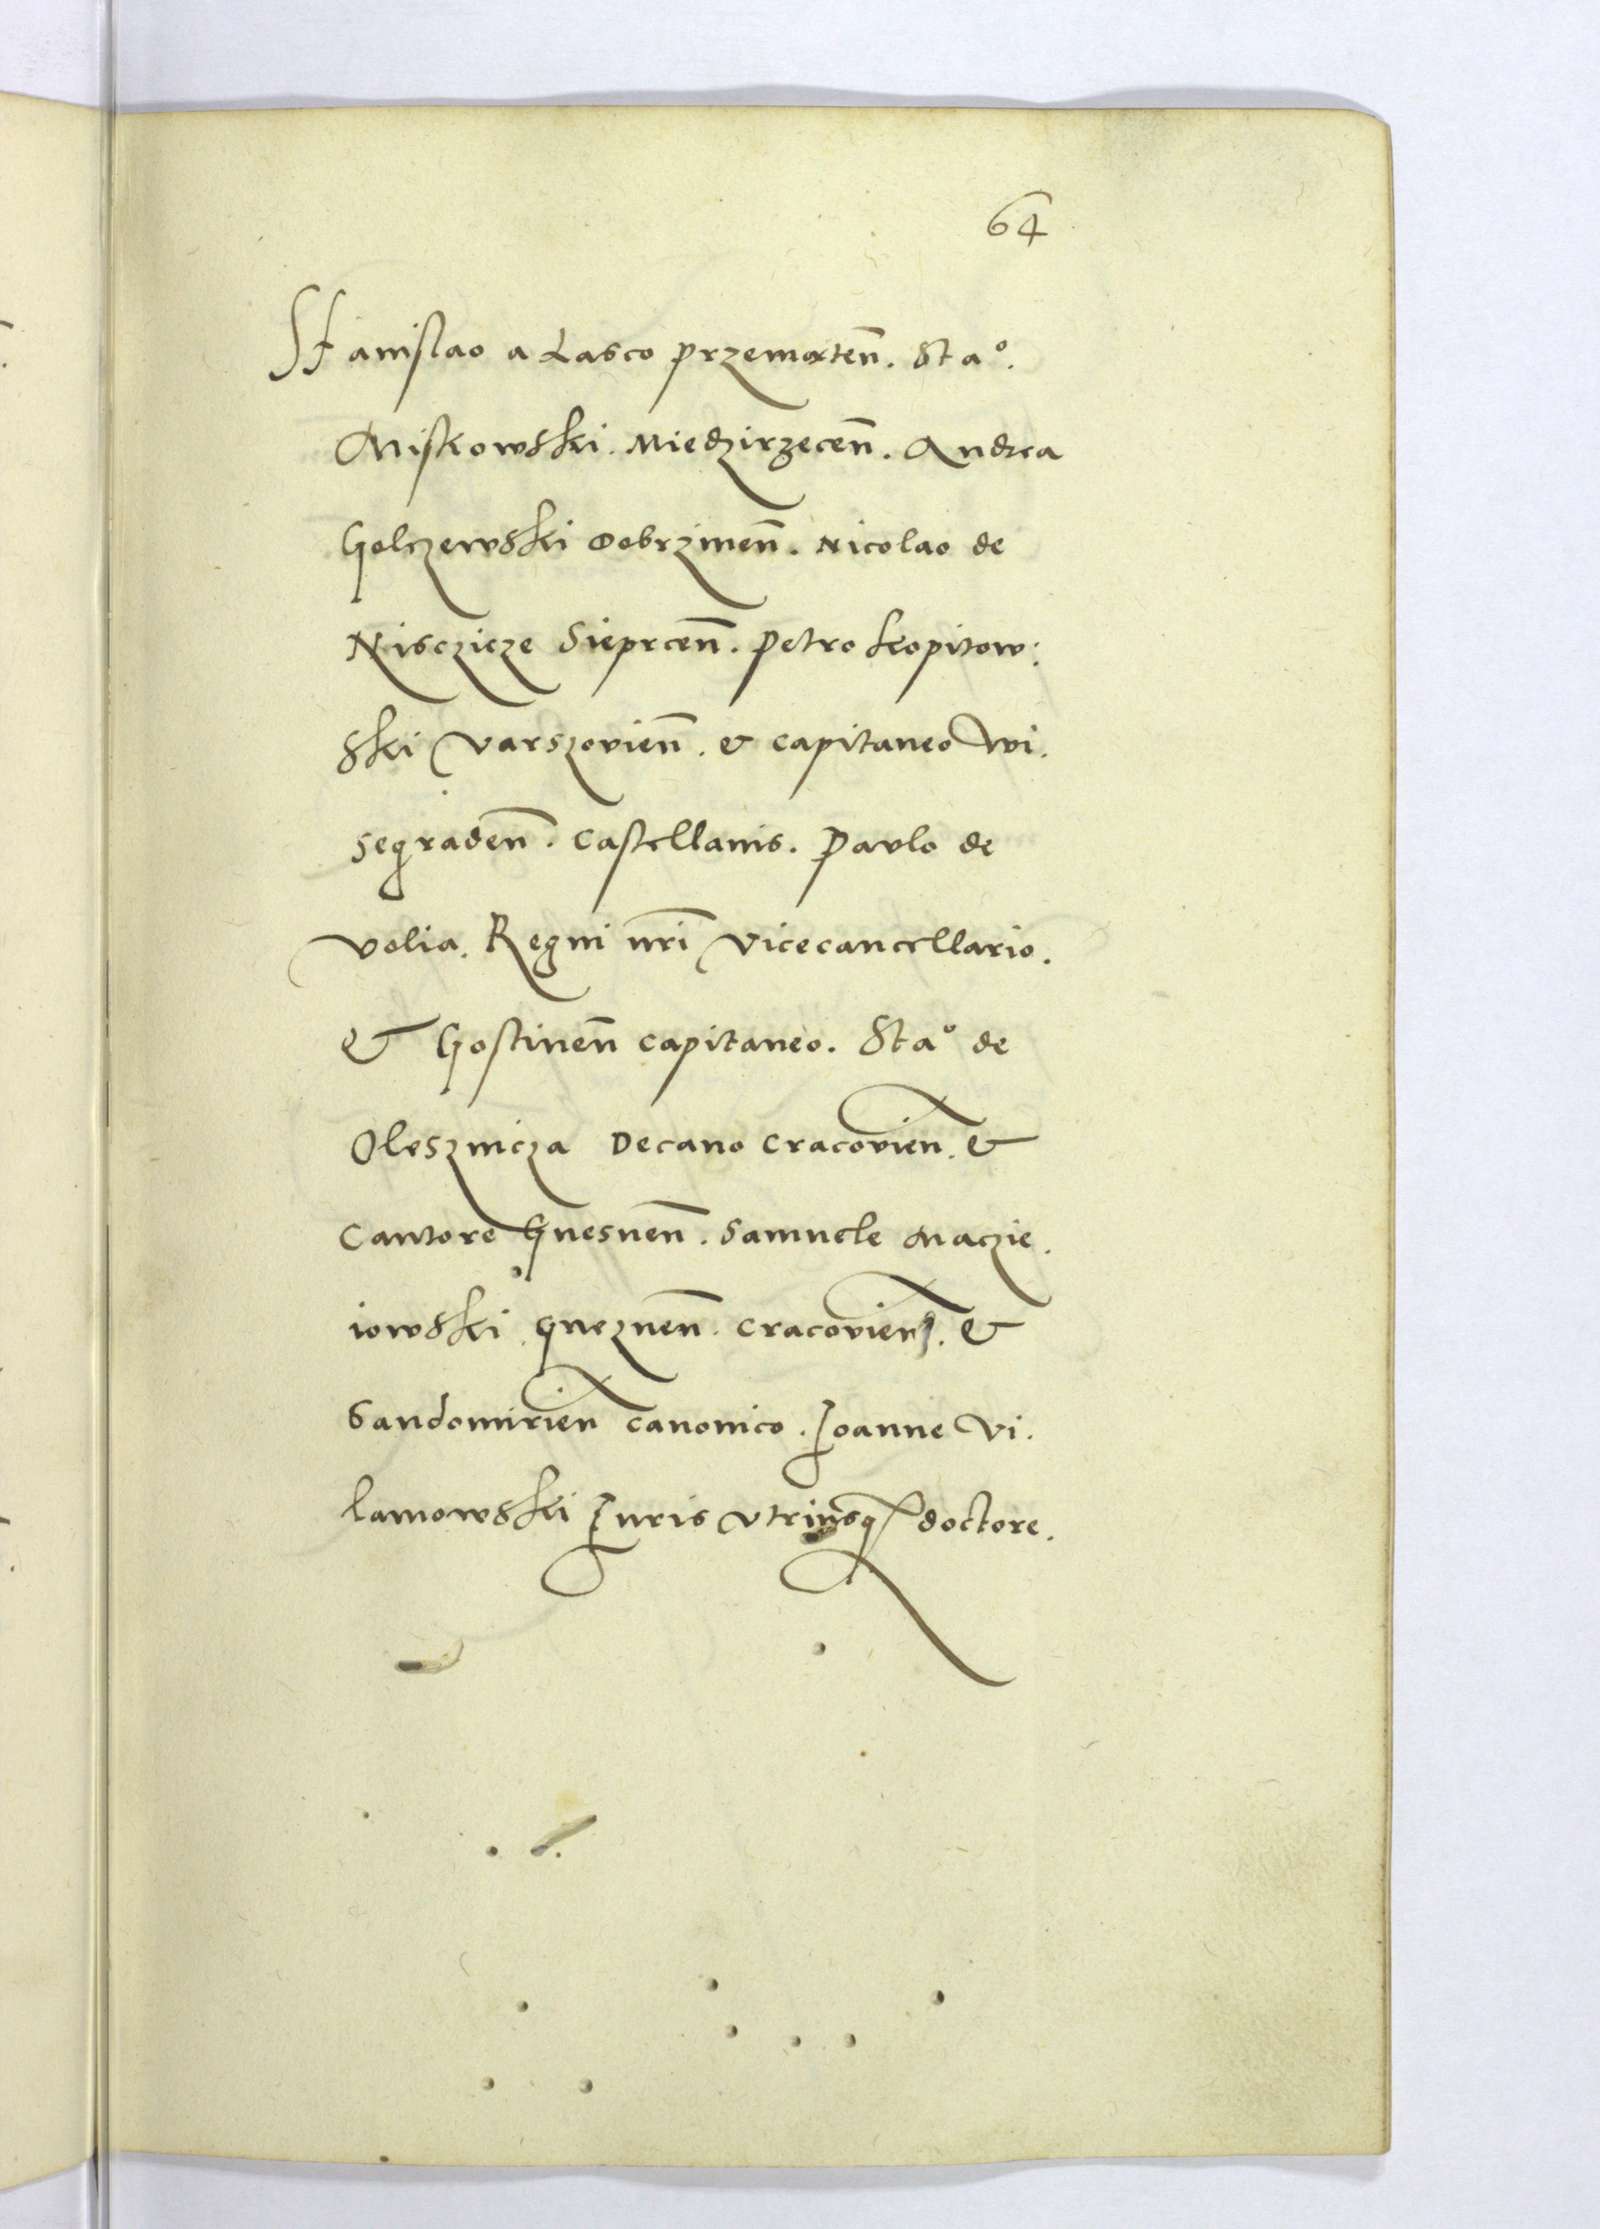 64
Stanislao a Lasco przemxten̄. Staº.
Miskowski. Miedzirzecen̄. Andrea
Golczewski Dobrzinen̄. Nicolao de
Nisczicze Sieprcen̄. Petro Kopitow:
ski Varszovien̄. & capitaneo Wi.
segraden̄. Castellanis. Pavlo de
Volia. Regni nr̄i Vicecancellario.
& Gostinen̄ capitaneo. Staº de
Olesznicza Decano Cracovien̄. &
Cantore Gnesnen̄. Samuele Maczie.
iowski. Gneznen̄. Cracovien̄. &
Sandomirien̄ canonico. Joanne Vi.
lamowski Juris Vtriusq doctore.